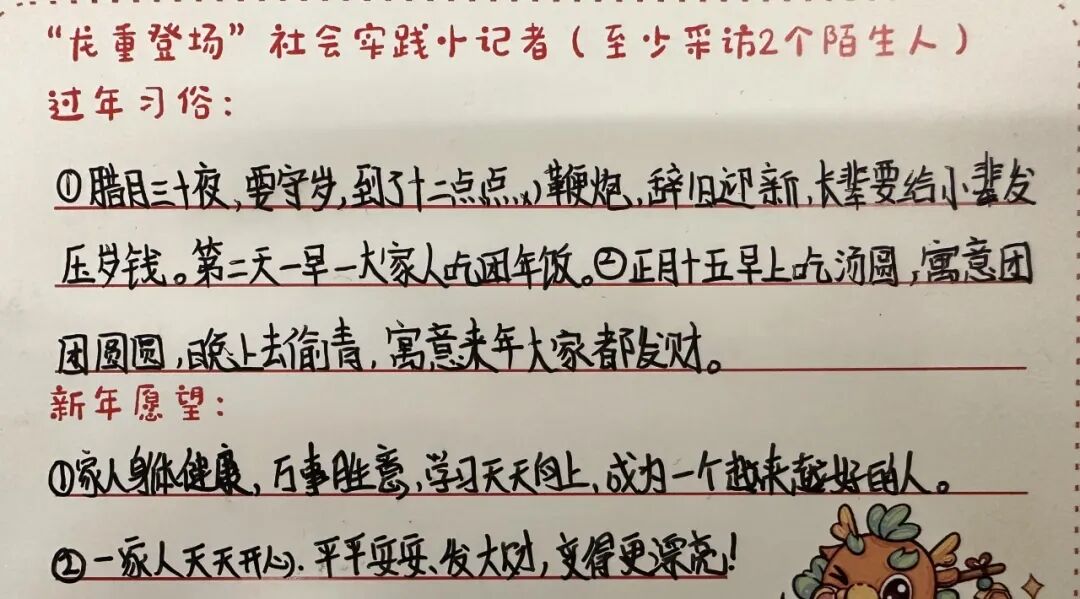 “龙重登场”社会实践小记者（至少采访2个陌生人）
过年习俗：
①腊月三十夜,要守岁,到了十二点(点火)鞭炮,辞旧迎新,长辈要给小辈发
压岁钱。第二天一早一大家人吃团年饭。②正月十五早上吃汤圆,寓意团
团圆圆,晚上去偷青,寓意来年大家都发财。
新年愿望：
①家人身体健康,万事胜意,学习天天向上,成为一个越来越好的人。
②一家人天天开心、平平安安、发大财,变得更漂亮!